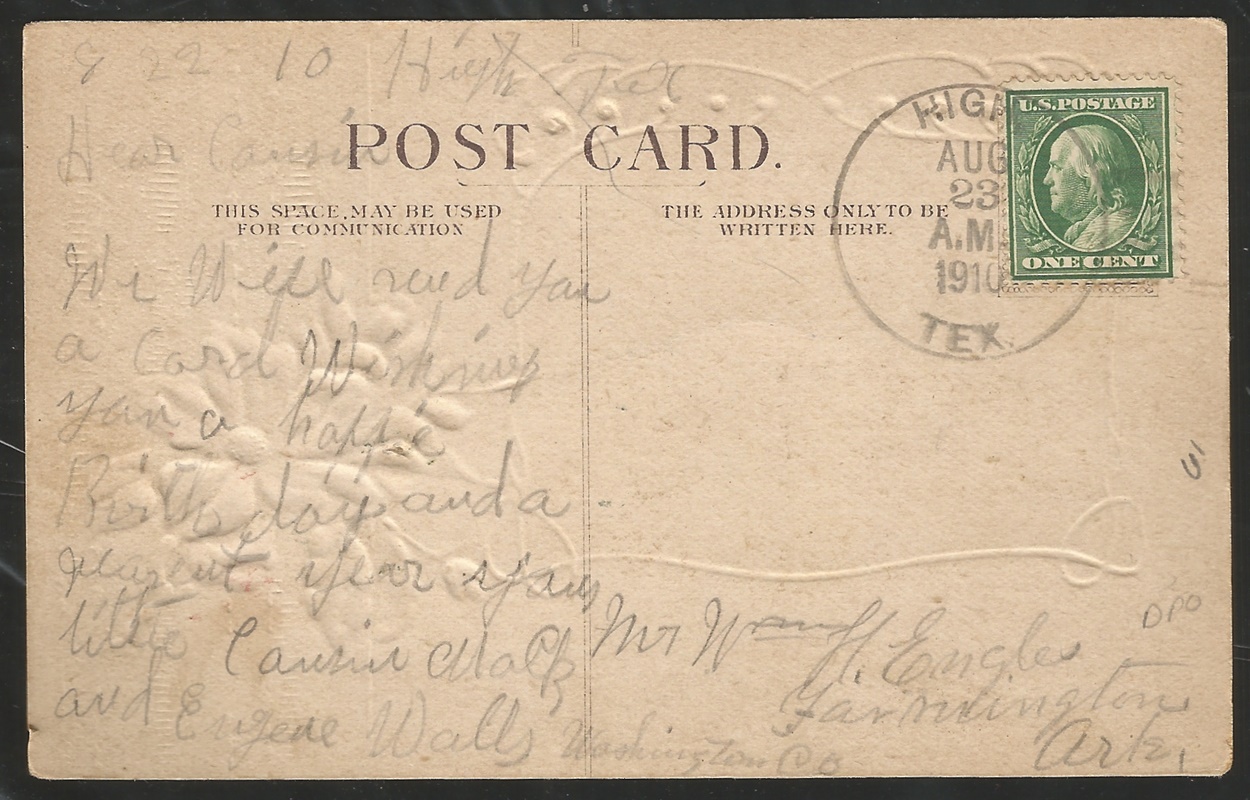 8 22 10 High Tex
Dear Cousin
POST CARD.
THIS SPACE MAY BE USED
FOR COMMUNICATION
THE ADDRESS ONLY TO BE
WRITTEN HERE.
HIGH
AUG
23
A.M.
1910
TEX.
U.S. POSTAGE
ONE CENT
We Will send you
a Card Wishing
you a happie
Birth day and a
year
little Cousin
and Eugene Walls
Mr Wm H. Engles
Farmington
Ark.
Washington Co
DPO